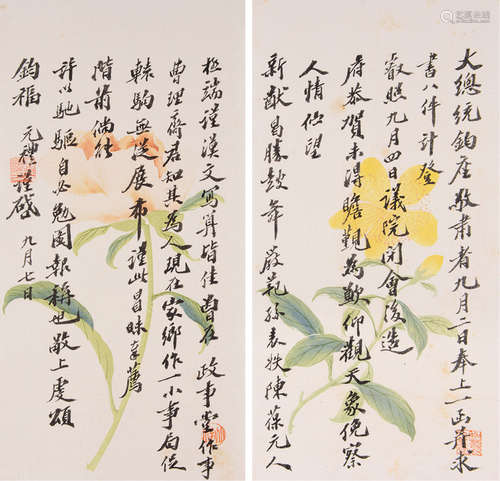 大總統鈞座敬肅者九月二日奉上一函
書八件計登
睿照九月四日議院開會後造
府恭賀未得瞻覲為歉仰觀天象俛察
人情佔望
新猷昌勝鼓舞嚴範孫表姪陳葆元人
極端謹漢文寫算皆佳曾在政事堂作事
曹理齋君知其為人現在家鄉作一小事局促
轅駒無從展布謹此冒昧奉薦
階前倘能
許以馳驅自必勉圖報稱也敬上虔頌
鈞福 元禮謹啟 九月七日